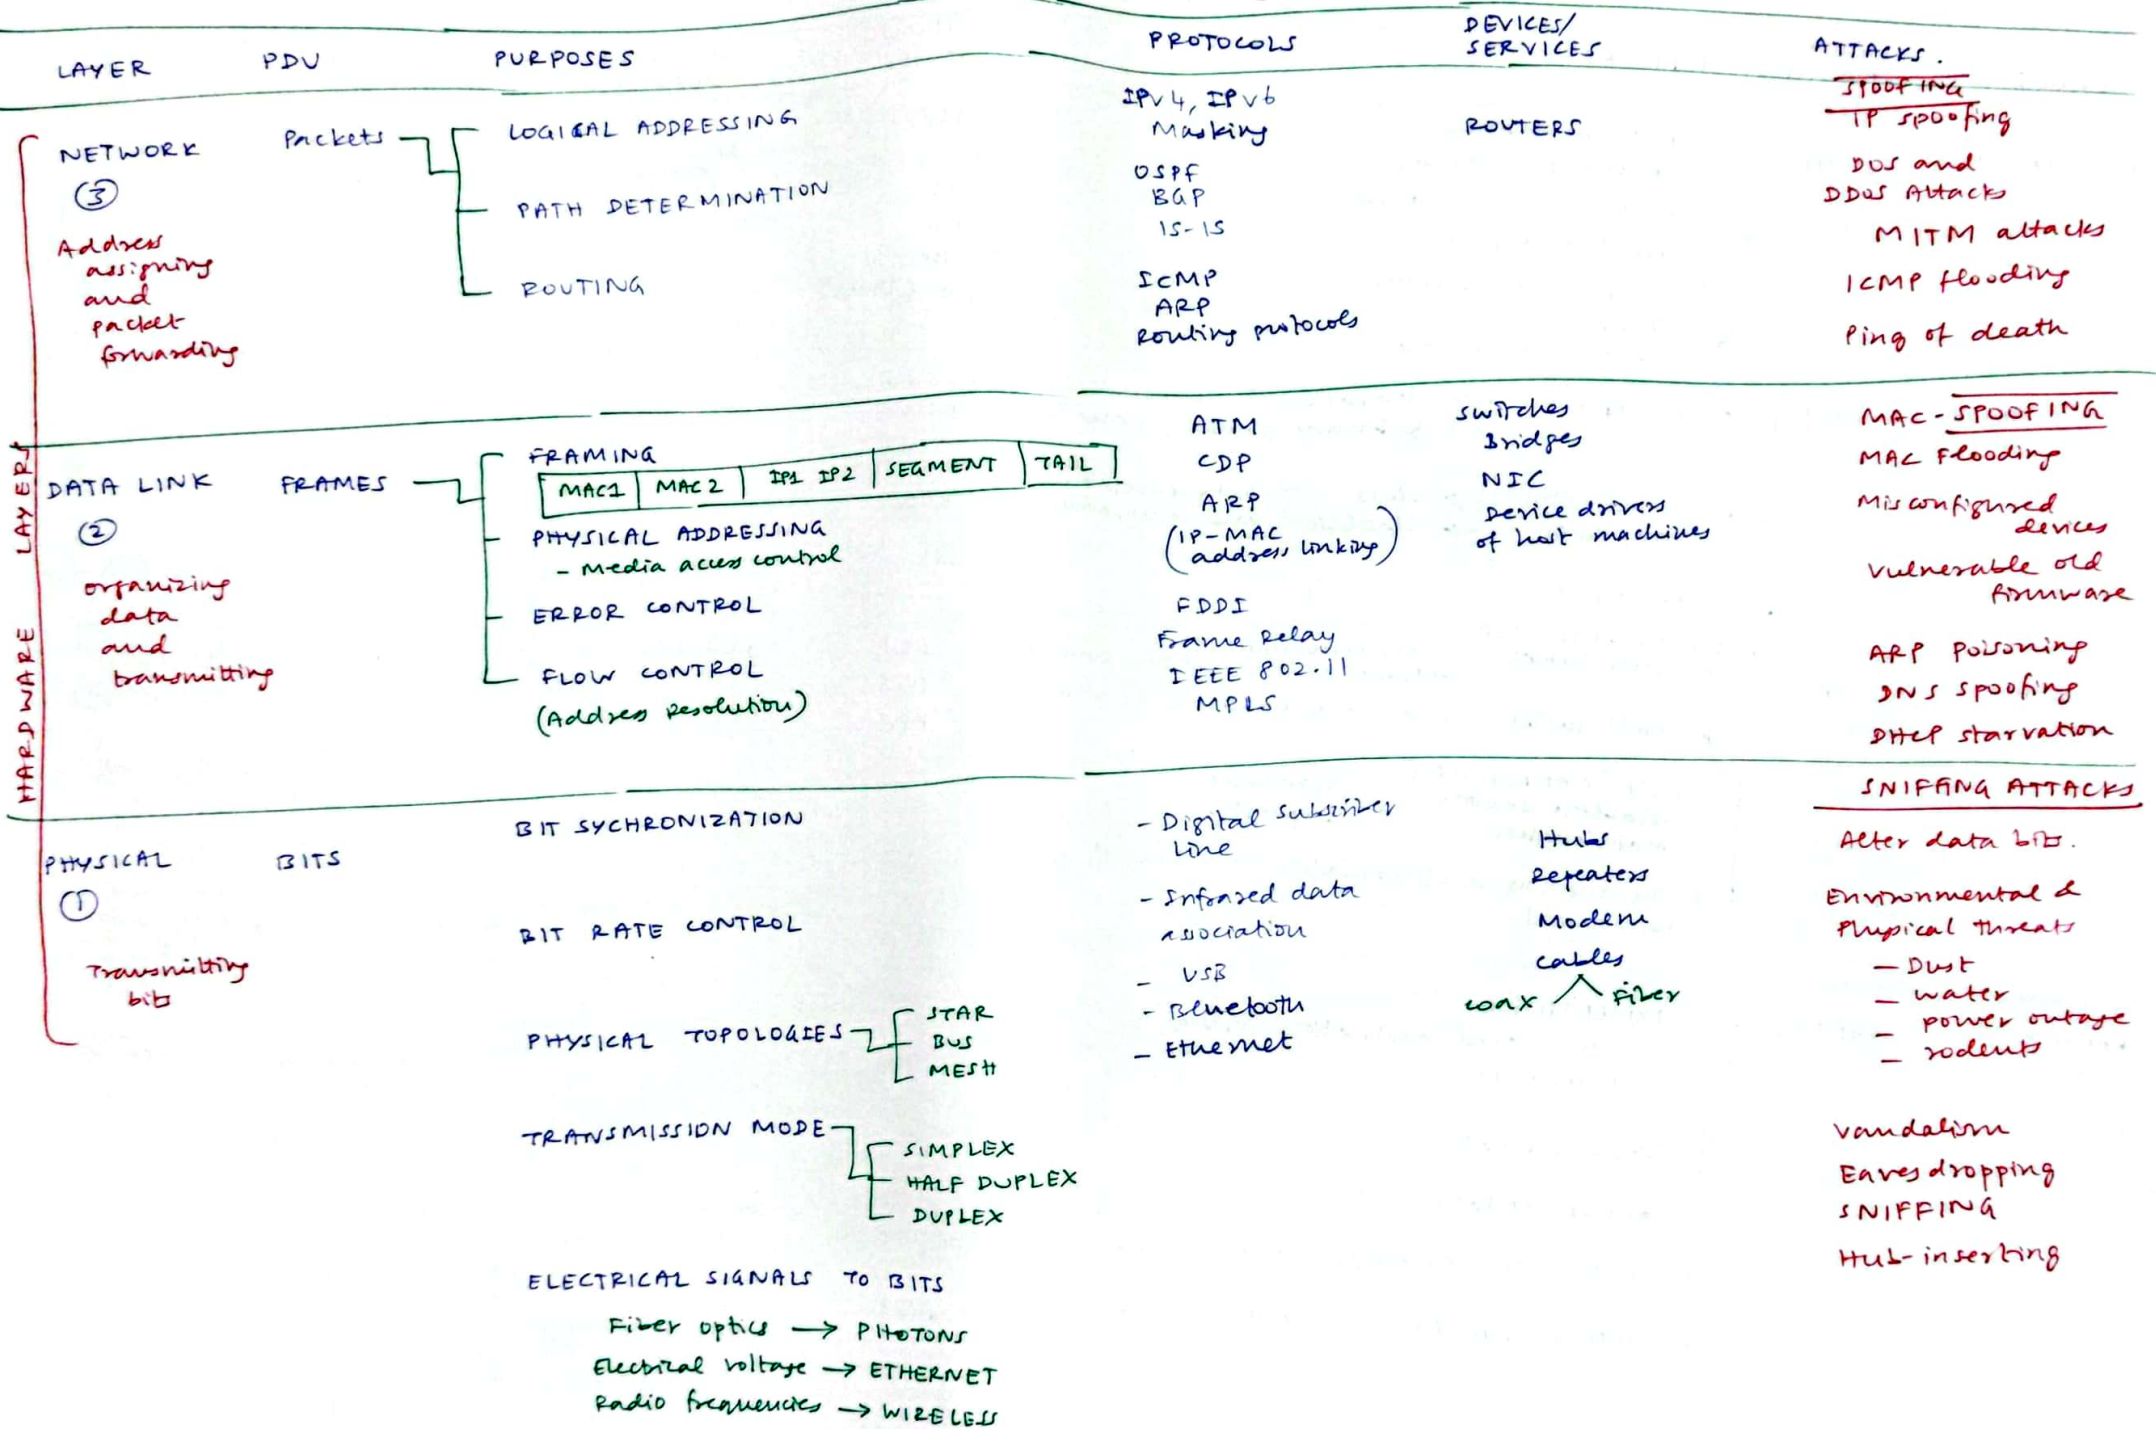 LAYER PDU PURPOSES PROTOCOLS DEVICES/ SERVICES ATTACKS.
NETWORK
③
Address
assigning
and
packet
forwarding
Packets
LOGICAL ADDRESSING
PATH DETERMINATION
ROUTING
IPv4, IPv6
Masking
OSPF
BGP
IS-IS
ICMP
ARP
Routing protocols
ROUTERS
SPOOFING
IP spoofing
DOS and
DDoS Attacks
MITM attacks
ICMP flooding
Ping of death
HARDWARE LAYERS
DATA LINK
②
organizing
data
and
transmitting
FRAMES
FRAMING
MAC1 MAC2 IP1 IP2 SEGMENT TAIL
PHYSICAL ADDRESSING
- Media access control
ERROR CONTROL
FLOW CONTROL
(Address Resolution)
ATM
CDP
ARP
(IP-MAC
address linking)
FDDI
Frame Relay
IEEE 802.11
MPLS
Switches
Bridges
NIC
Device drivers
of host machines
MAC-SPOOFING
MAC Flooding
Misconfigured
devices
Vulnerable old
firmware
ARP Poisoning
DNS spoofing
DHCP starvation
SNIFFING ATTACKS
PHYSICAL
①
Transmitting
bits
BITS
BIT SYCHRONIZATION
BIT RATE CONTROL
PHYSICAL TOPOLOGIES
STAR
BUS
MESH
TRANSMISSION MODE
SIMPLEX
HALF DUPLEX
DUPLEX
ELECTRICAL SIGNALS TO BITS
Fiber optics → PHOTONS
Electrical voltage → ETHERNET
Radio frequencies → WIRELESS
- Digital Subscriber
Line
- Infrared data
association
- USB
- Bluetooth
- Ethernet
Hubs
Repeaters
Modem
Cables
coax Fiber
Alter data bits.
Environmental &
Physical threats
- Dust
- water
- power outage
- rodents
Vandalism
Eavesdropping
SNIFFING
Hub-inserting